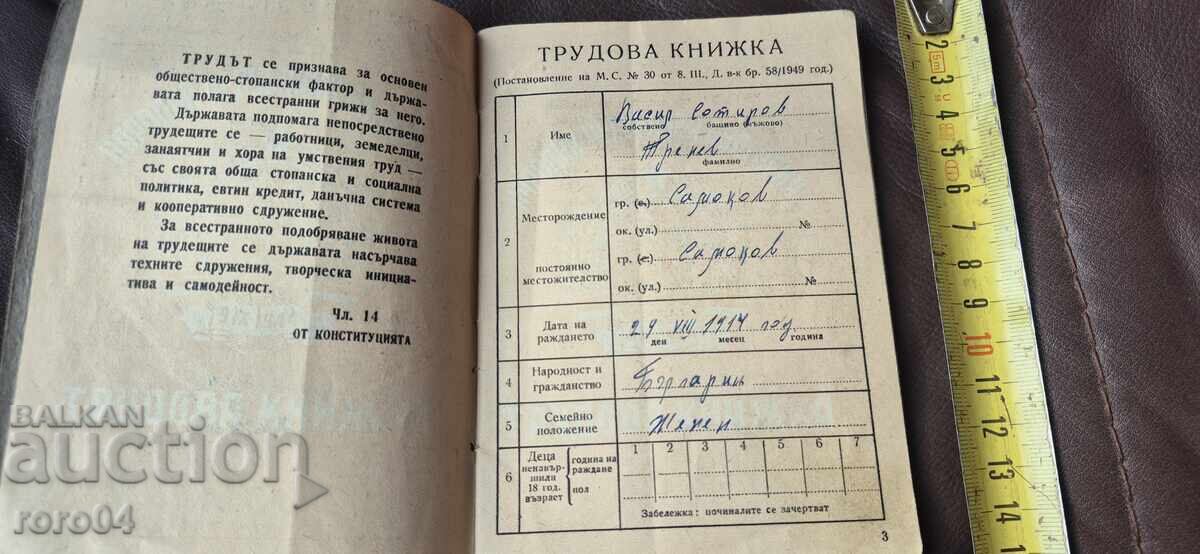 ТРУДЪТ се признава за основен
обществено-стопански фактор и държа-
вата полага всестранни грижи за него.
Държавата подпомага непосредствено
трудещите се — работници, земеделци,
занаятчии и хора на умствения труд —
със своята обща стопанска и социална
политика, евтин кредит, данъчна система
и кооперативно сдружение.
За всестранното подобряване живота
на трудещите се държавата насърчава
техните сдружения, творческа инициа-
тива и самодейност.
Чл. 14
ОТ КОНСТИТУЦИЯТА
ТРУДОВА КНИЖКА
(Постановление на М. С. № 30 от 8. III., Д. в-к бр. 58/1949 год.)
1 Име Васил Сотиров
собствено бащино (мъжово)
Тренев
фамилно
2 Месторождение гр. (с.) Самоков
ок. (ул.) №
постоянно местожителство гр. (с.) Самоков
ок. (ул.) №
3 Дата на раждането 29 VIII 1914 год
ден месец година
4 Народност и гражданство Българин
5 Семейно положение Женен
6 Деца ненавършили 18 год. възраст година на раждане пол 1 2 3 4 5 6 7
Забележка: починалите се зачертват
3
2 3 4 5 6 7 8 9 10 11 12 13 14
5m
BALKAN
auction
roro04